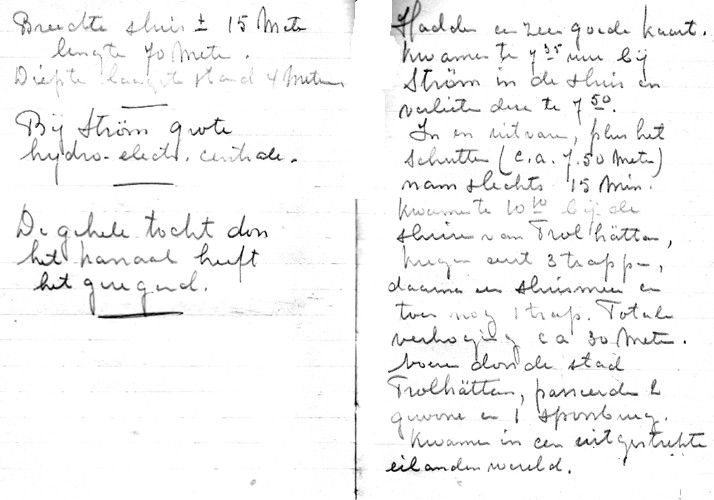 Breedte sluis ± 15 Meter
lengte 70 Meter.
Diepte laagste stand 4 Meter
Bij Ström grote
hydro-electr. centrale.
De gehele tocht door
het kanaal heeft
het geregend.
Hadden en zeer goede kaart.
Kwamen te 7 35 uur bij
Ström in de sluis en
verlieten deze te 7 50.
In en uitvaren, plus het
schutten (c.a. 7.50 Meter)
nam slechts 15 Min.
Kwamen te 10 10 bij de
sluizen van Trolhättan,
kregen eerst 3 trappen,
daarna een sluismeer en
toen nog 1 trap. Totale
verhoging ca 30 Meter.
Voeren door de stad
Trolhättan, passeerden 2
gewone en 1 spoorbrug.
Kwamen in een uitgestrekte
eilandenwereld.